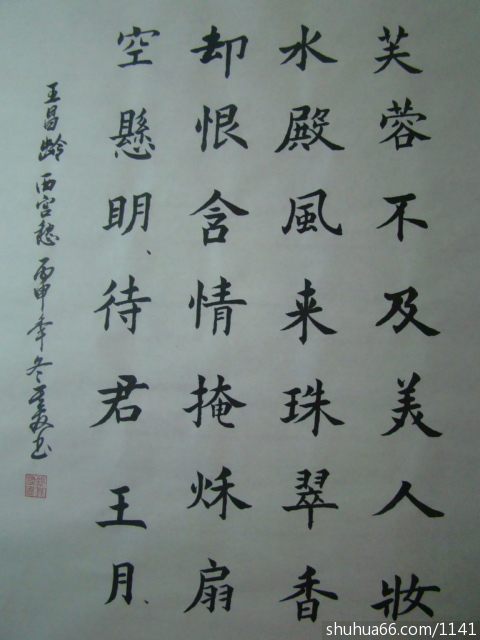 芙蓉不及美人妝
水殿風来珠翠香
却恨含情掩秋扇
空懸明、待君王月、
王昌龄 西宫 丙申年冬 书
shuhua66.com/1141